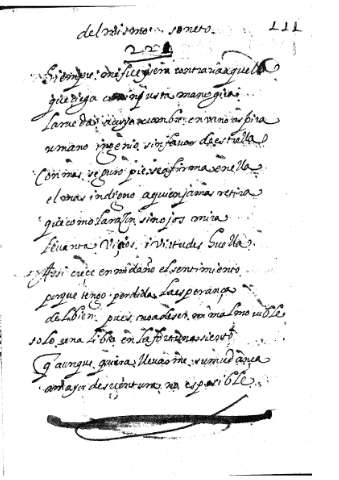 del mismo soneto.
111
221
siempre me fue fiera contraria aquella
que ciega con injusta mano gira
la rueda a cuya cumbre en vano aspira
umano ingenio sin favor de estrella
Con mas seguro pie se afirma en ella
el mas indigno a quien jamas retira
que como la razon sin ojos mira
levanta Vicios, i Virtudes huella.
Assi crece en mi daño el sentimiento
porque tengo perdida la esperança
de el bien, pues no a de ser mi mal movible
solo una libra en la fortuna siento
q aunque quiera llevarme su mudança
a mayor desventura no es posible